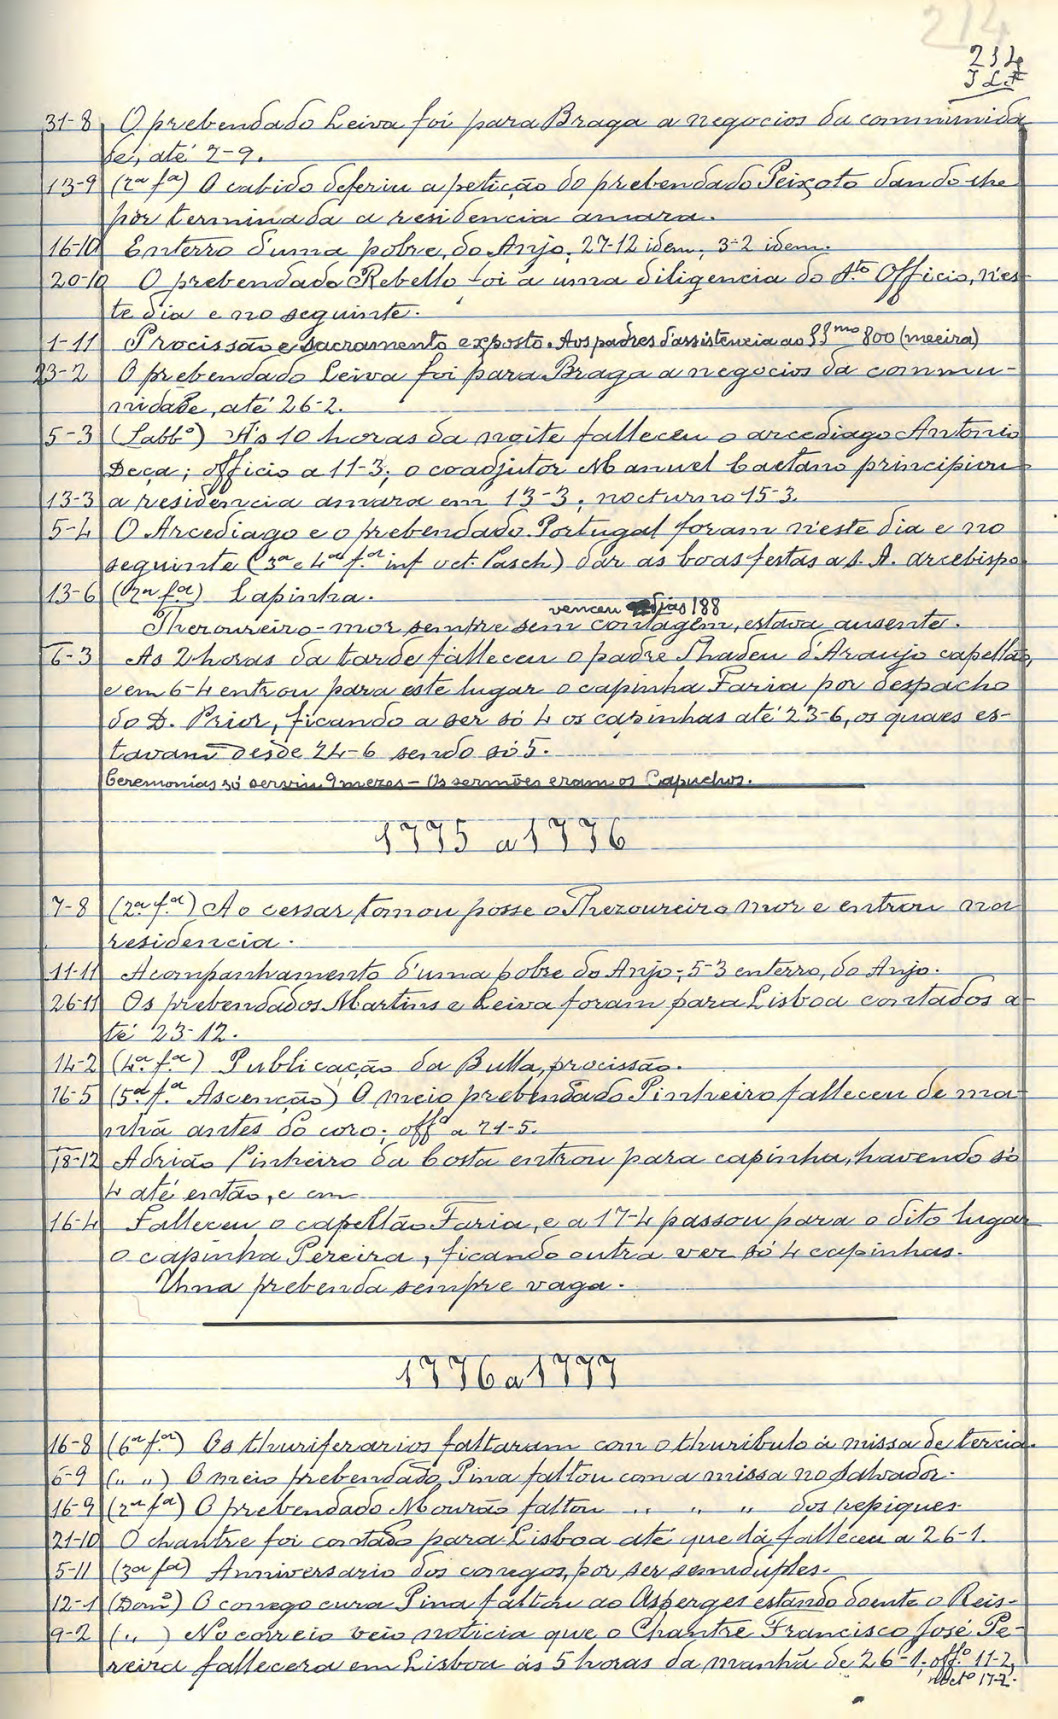 214
214
31-8 O prebendado Leiva foi para Braga a negocios da communida
de, até 2-9.
13-9 (2ª fª) O cabido deferiu a petição do prebendado Peixoto dando-lhe
por terminada a residencia amara.
16-10 Enterro d'uma pobre, do Anjo; 27-12 idem; 3-2 idem.
20-10 O prebendado Rebello foi a uma diligencia do Sto Officio, n'es-
te dia e no seguinte.
1-11 Procissão e sacramento exposto. Aos padres d'assistencia ao SSmo 800 (meeira)
23-2 O prebendado Leiva foi para Braga a negocios da commu-
nidade, até 26-2.
5-3 (Sabbº) A's 10 horas da noite falleceu o arcediago Antonio
Deça; officio a 11-3; o coadjutor Manuel Caetano principiou
13-3 a residencia amara em 13-3; nocturno 15-3.
5-4 O Arcediago e o prebendado Portugal foram n'este dia e no
seguinte (3ª e 4ª f.ª inf oct. Pasch) dar as boas festas a S. A. arcebispo
13-6 (2ª fª) Lapinha.
venceu dias 188
Thezoureiro-mor sempre sem contagem, estava ausente.
6-3 As 2 horas da tarde falleceu o padre Thadeu d'Araujo capellão,
e em 6-4 entrou para este lugar o capinha Faria por despacho
do D. Prior, ficando a ser só 4 os capinhas até 23-6, os quaes es-
tavam desde 24-6 sendo só 5.
Ceremonias só serviu 9 mezes - Os sermões eram os Capuchos.
1775 a 1776
7-8 (2ª f.ª) Ao cessar tomou posse o Thezoureiro mor e entrou na
residencia.
11-11 Acompanhamento d'uma pobre do Anjo; 5-3 enterro, do Anjo.
26-11 Os prebendados Martins e Leiva foram para Lisboa contados a-
té 23-12.
14-2 (4.ª f.ª) Publicação da Bulla, procissão.
16-5 (5ª f.ª Ascenção) O meio prebendado Pinheiro falleceu de ma-
nhã antes do coro; offº a 21-5.
18-12 Adrião Pinheiro da Costa entrou para capinha, havendo só
4 até então, e em
16-4 Falleceu o capellão Faria, e a 17-4 passou para o dito lugar
o capinha Pereira, ficando outra vez só 4 capinhas.
Uma prebenda sempre vaga.
1776 a 1777
16-8 (6ª fª) Os thuriferarios faltaram com o thuribulo á missa de tercia.
6-9 („ „) O meio prebendado Pina faltou com a missa no Salvador.
16-9 (2ª fª) O prebendado Mourão faltou „ „ „ dos repiques.
21-10 O chantre foi contado para Lisboa até que lá falleceu a 26-1.
5-11 (3ª fª) Anniversario dos conegos, por ser semiduples.
12-1 (Domº) O conego cura Pina faltou ao Asperges estando doente o Reis.
9-2 („ ) No correio veio noticia que o Chantre Francisco José Pe-
reira fallecera em Lisboa ás 5 horas da manhã de 26-1; offº 11-2,
noctº 17-2.